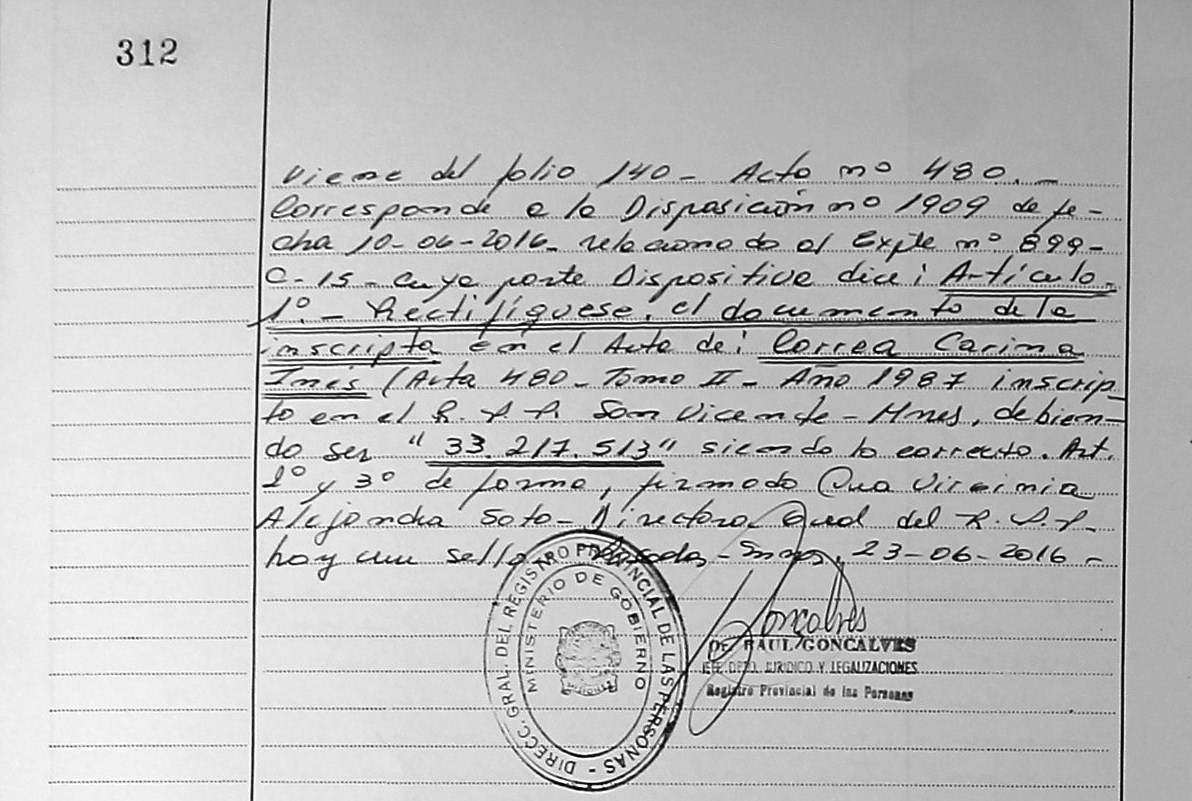 312
Viene del folio 140 - Acta nº 480. -
Corresponde a la Disposición nº 1909 de fe-
cha 10-06-2016- relacionado al Expte nº 899-
C-15- cuya parte Dispositiva dice: Artículo-
1º. - Rectifíquese, el documento de la
inscripta en el Acta de: Correa Carina
Inés (Acta 480 - Tomo II - Año 1987 inscrip-
to en el R. P. P. San Vicente - Mnes, debien-
do ser "33.217.513" siendo lo correcto. Art.
2º y 3º de forma, firmado Virginia
Alejandra Soto - Directora Gral del R. P. P.
hay un sello - Posadas - Mnes, 23-06-2016 -
DIRECC. GRAL. DEL REGISTRO PROVINCIAL DE LAS PERSONAS -
MINISTERIO DE GOBIERNO
MISIONES
Goncalves
RAUL GONCALVES
JEFE DPTO. JURIDICO Y LEGALIZACIONES
Registro Provincial de las Personas